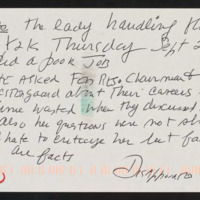 The lady handling th
Y2K Thursday Sept 2
ed a poor Job
asked For Res. Chairmans
about Their careers
ime wasted when they discussed
also her questions were not sh
hate to criticize her but fa
are facts
Disappointed